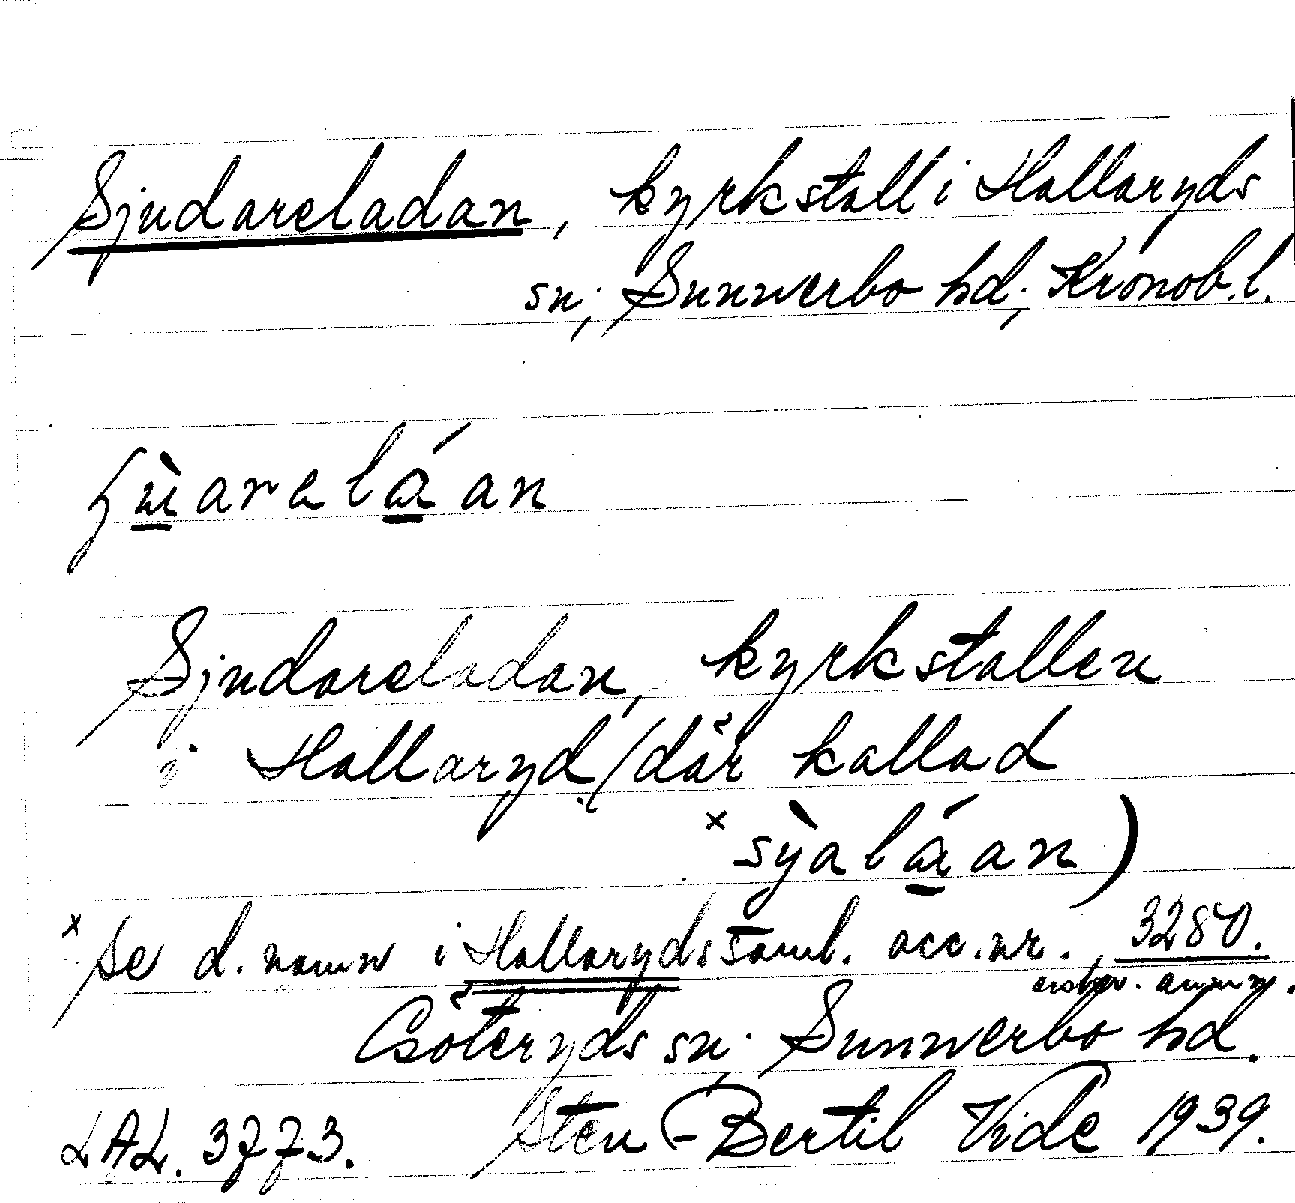 Sjudareladan, kyrkstall i Hallaryds
sn; Sunnerbo hd; Kronob.l.
ʃùarelá an
Sjudareladan, kyrkstallen
i Hallaryd (där kallad
× sỳaláan)
× Se d. namn i Hallaryds saml. acc.nr. 3280.
Göteryds sn; Sunnerbo hd.
LAL. 3773. Sten-Bertil Vide 1939.